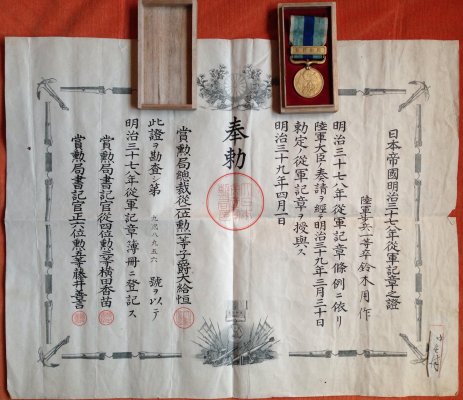 日本帝國明治三十七八年從軍記章之證
陸軍歩兵一等卒鈴木周作
明治三十七八年從軍記章條例ニ依リ
陸軍大臣ノ奏請ヲ經明治三十九年三月三十日
勅定ノ從軍記章ヲ授與ス
明治三十九年四月一日
奉勅
賞勲局總裁從二位勲一等子爵大給恒
此證ヲ勘査シ第 號ヲ以テ
明治三十七八年從軍記章簿冊ニ登記ス
賞勲局書記官從四位勲三等横田香苗
賞勲局書記官正六位勲五等藤井善言